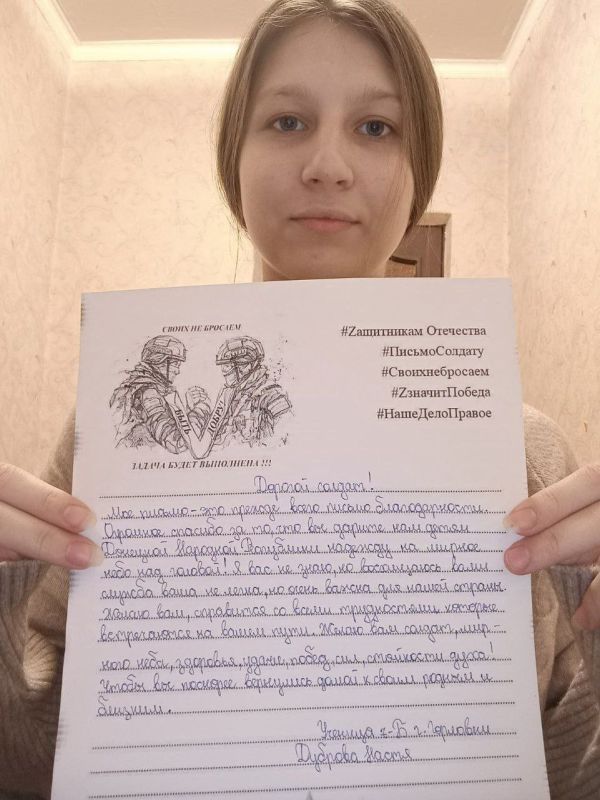 СВОИХ НЕ БРОСАЕМ
БЫТЬ ДОБРУ
ЗАДАЧА БУДЕТ ВЫПОЛНЕНА !!!
#Zащитникам Отечества
#ПисьмоСолдату
#Своихнебросаем
#ZзначитПобеда
#НашеДелоПравое
Дорогой солдат!
Мое письмо-это прежде всего письмо благодарности.
Огромное спасибо за то,что вы дарите нам детям
Донецкой Народной Республики надежду на мирное
небо над головой! Я вас не знаю,но восхищаюсь вами
служба ваша не легка,но очень важна для нашей страны.
Желаю вам, справится со всеми трудностями которые
встречаются на вашем пути. Желаю вам солдат, мир-
ного неба, здоровья, удачи, побед, сил, стойкости духа!
Чтобы вы поскорее вернулись домой к своим родным и
близким.
Ученица г. Горловки
Дуброва Настя